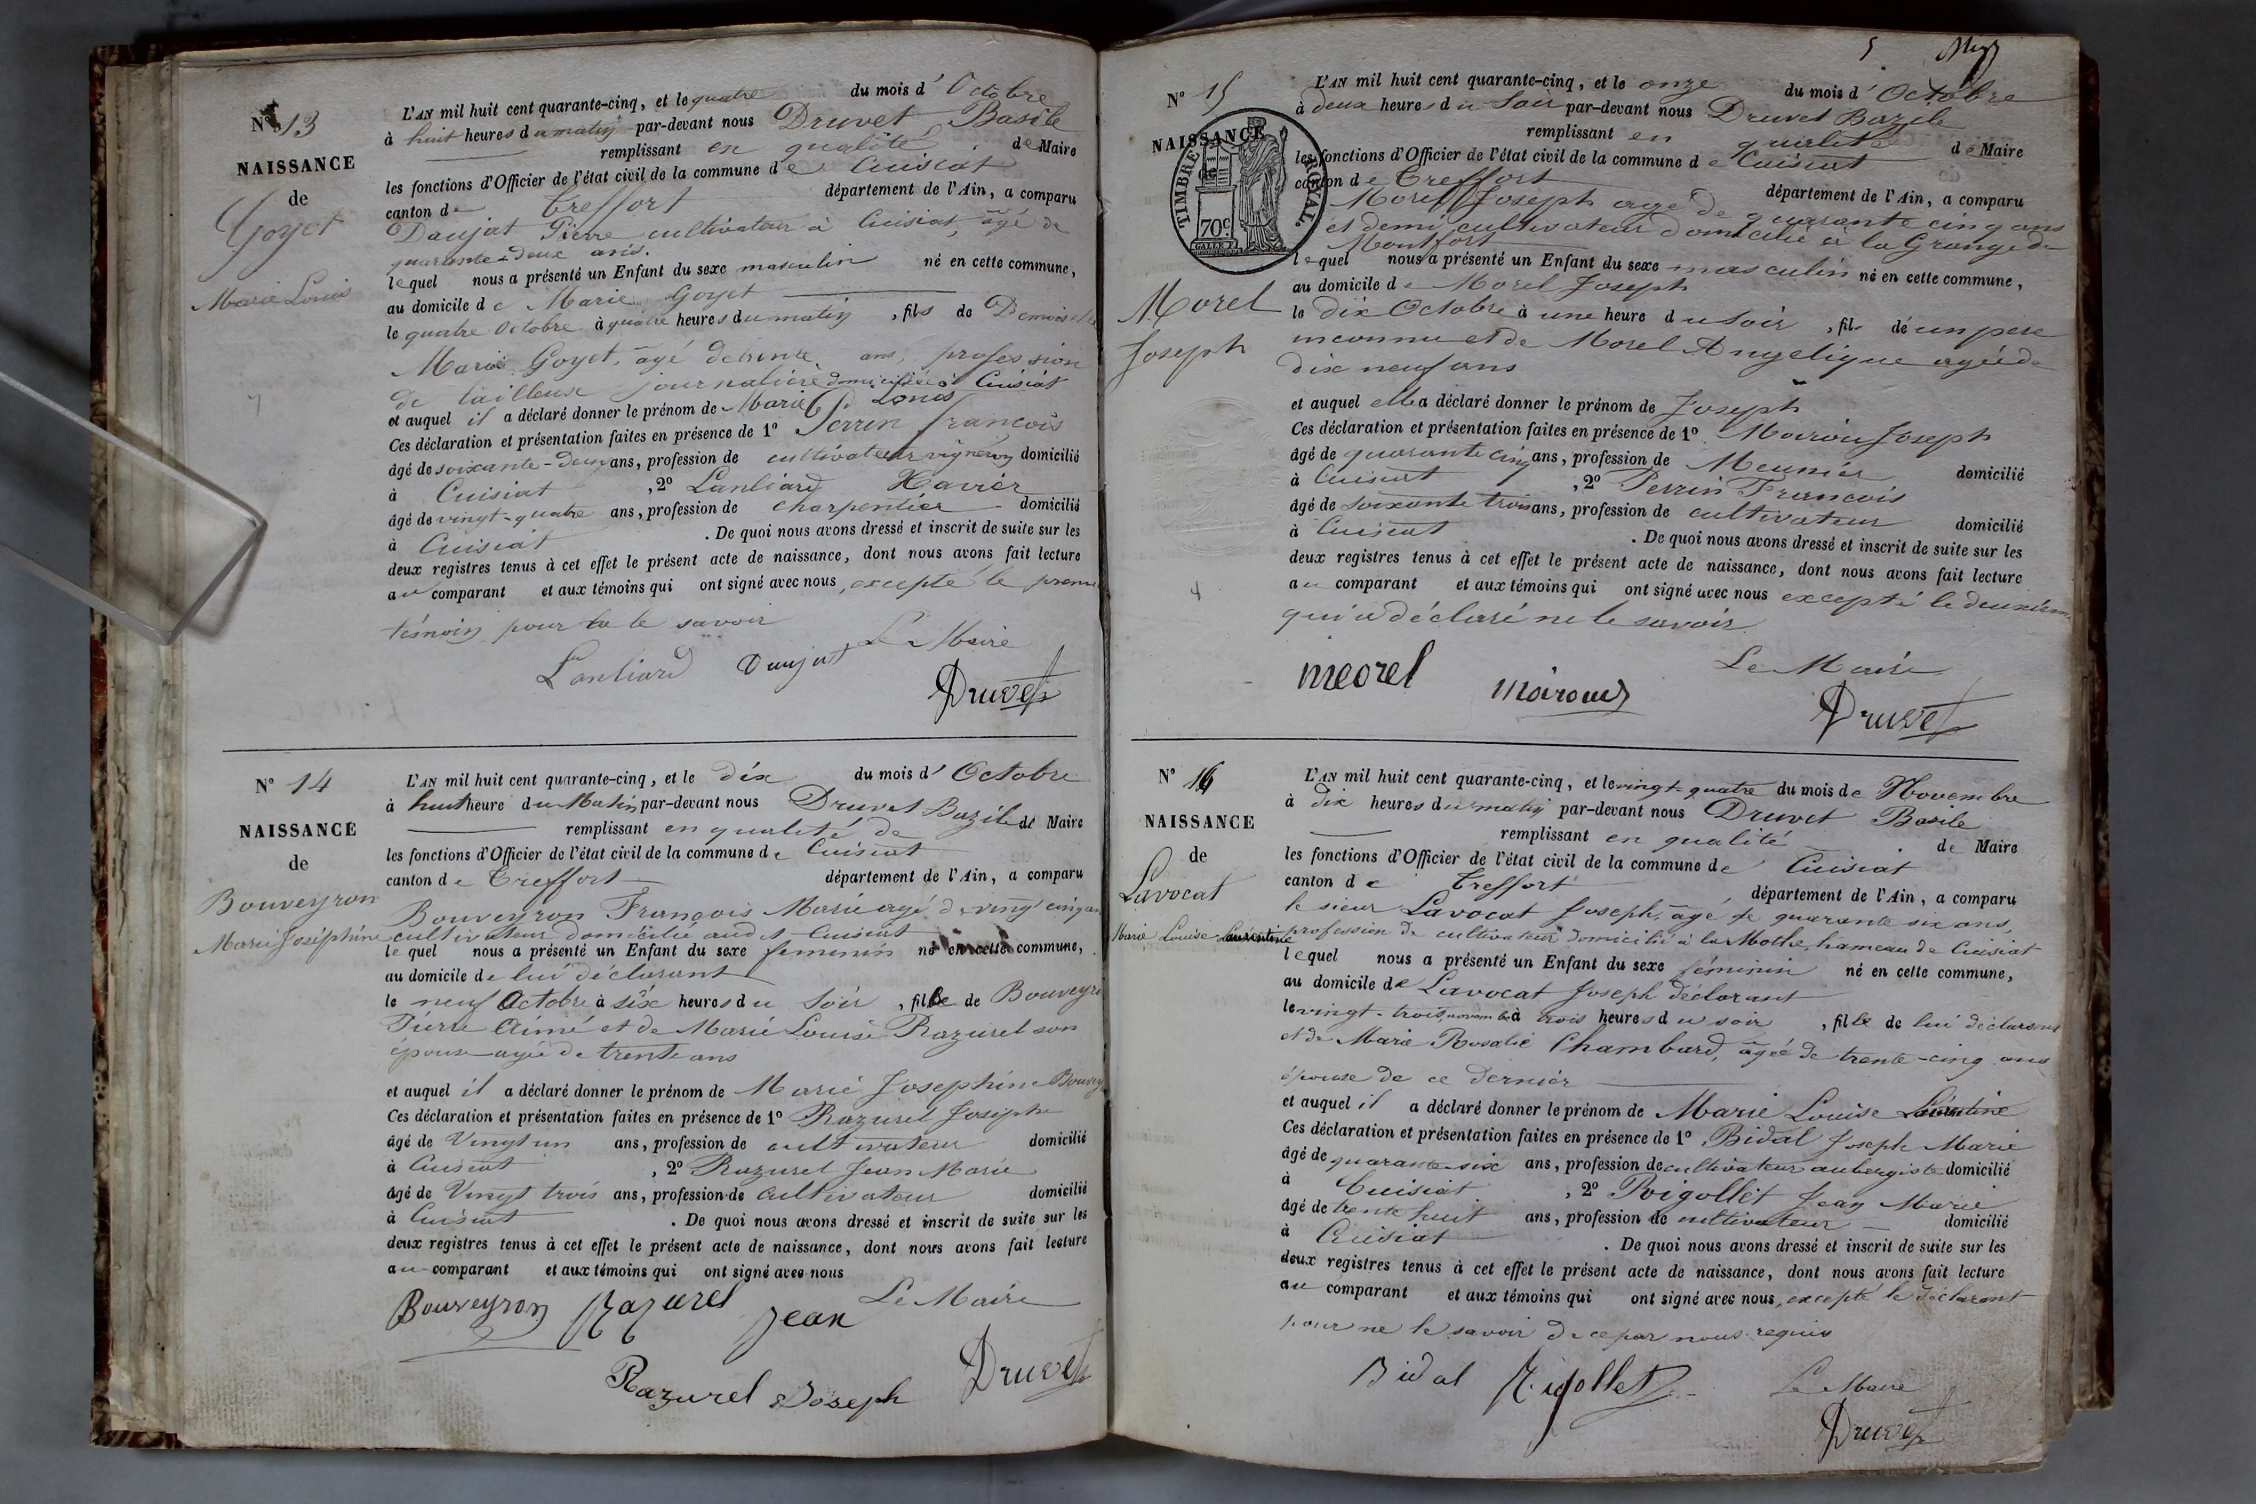 N° 13
NAISSANCE
de
Goyet
Marie Louis
L'AN mil huit cent quarante-cinq, et le quatre du mois d' Octobre
à huit heures du matin par-devant nous Druvet Basile
remplissant en qualité de Maire
les fonctions d'Officier de l'état civil de la commune de Cuisiat
canton de Treffort département de l'Ain, a comparu
Daujat Pierre cultivateur à Cuisiat, âgé de
quarante-deux ans.
lequel nous a présenté un Enfant du sexe masculin né en cette commune,
au domicile de Marie Goyet
le quatre Octobre à quatre heures du matin, fils de Demoiselle
Marie Goyet, âgé de trente ans, profession
de tailleuse journalière domiciliée à Cuisiat
et auquel il a déclaré donner le prénom de Marie Louis
Ces déclaration et présentation faites en présence de 1° Perrin françois
âgé de soixante-deux ans, profession de cultivateur vigneron domicilié
à Cuisiat, 2° Lanliard Xavier
âgé de vingt-quatre ans, profession de charpentier domicilié
à Cuisiat. De quoi nous avons dressé et inscrit de suite sur les
deux registres tenus à cet effet le présent acte de naissance, dont nous avons fait lecture
au comparant et aux témoins qui ont signé avec nous, excepté le premier
témoin pour ne le savoir
Le Maire
Lanliard Daujat
Druvet
N° 14
NAISSANCE
de
Bouveyron
Marie Joséphine
L'AN mil huit cent quarante-cinq, et le dix du mois d' Octobre
à huit heure du Matin par-devant nous Druvet Bazile de Maire
remplissant en qualité de
les fonctions d'Officier de l'état civil de la commune de Cuisiat
canton de Treffort département de l'Ain, a comparu
Bouveyron François Marie agé de vingt cinq ans
cultivateur domicilié audit Cuisiat
lequel nous a présenté un Enfant du sexe feminin né en cette commune,
au domicile de lui déclarant
le neuf Octobre à six heures du Soir, fille de Bouveyron
Pierre Aimé et de Marie Louise Razurel son
épouse agée de trente ans
et auquel il a déclaré donner le prénom de Marie Josephine Bouvey
Ces déclaration et présentation faites en présence de 1° Razurel Joseph
âgé de Vingt un ans, profession de cultivateur domicilié
à Cuisiat, 2° Razurel Jean Marie
âgé de Vingt trois ans, profession de cultivateur domicilié
à Cuisiat. De quoi nous avons dressé et inscrit de suite sur les
deux registres tenus à cet effet le présent acte de naissance, dont nous avons fait lecture
au comparant et aux témoins qui ont signé avec nous
Le Maire
Bouveyron Razurel Jean
Razurel Joseph
Druvet
5
N° 15
NAISSANCE
TIMBRE ROYAL.
70c.
Morel
Joseph
L'AN mil huit cent quarante-cinq, et le onze du mois d' Octobre
à deux heures du Soir par-devant nous Druvet Bazile
remplissant en qualité de Maire
les fonctions d'Officier de l'état civil de la commune de Cuisiat
canton de Treffort département de l'Ain, a comparu
Morel Joseph age de quarante cinq ans
et demi cultivateur domicilié à la Grange de
Montfort
lequel nous a présenté un Enfant du sexe masculin né en cette commune,
au domicile de Morel Joseph
le dix Octobre à une heure du Soir, fils dé un pere
inconnu et de Morel Angelique agée de
dix neuf ans
et auquel elle a déclaré donner le prénom de Joseph
Ces déclaration et présentation faites en présence de 1° Moirou Joseph
âgé de quarante cinq ans, profession de Meunier domicilié
à Cuisiat, 2° Perrin Francois
âgé de soixante trois ans, profession de cultivateur domicilié
à Cuisiat. De quoi nous avons dressé et inscrit de suite sur les
deux registres tenus à cet effet le présent acte de naissance, dont nous avons fait lecture
au comparant et aux témoins qui ont signé avec nous excepté le deuxième
qui a déclaré ne le savoir
Le Maire
morel moiroud
Druvet
N° 16
NAISSANCE
de
Lavocat
Marie Louise Laurentine
L'AN mil huit cent quarante-cinq, et le vingt-quatre du mois de Novembre
à dix heures du matin par-devant nous Druvet Basile
remplissant en qualité de Maire
les fonctions d'Officier de l'état civil de la commune de Cuisiat
canton de Treffort département de l'Ain, a comparu
le sieur Lavocat Joseph, âgé de quarante six ans,
profession de cultivateur domicilié à la Mothe, hameau de Cuisiat
lequel nous a présenté un Enfant du sexe féminin né en cette commune,
au domicile de Lavocat Joseph déclarant
le vingt-trois novembre à trois heures du soir, fille de lui déclarant
et de Marie Rosalie Chambard, âgée de trente-cinq ans
épouse de ce dernier
et auquel il a déclaré donner le prénom de Marie Louise Laurentine
Ces déclaration et présentation faites en présence de 1° Bidal Joseph Marie
âgé de quarante-six ans, profession de cultivateur aubergiste domicilié
à Cuisiat, 2° Rigollet Jean Marie
âgé de trente huit ans, profession de cultivateur domicilié
à Cuisiat. De quoi nous avons dressé et inscrit de suite sur les
deux registres tenus à cet effet le présent acte de naissance, dont nous avons fait lecture
au comparant et aux témoins qui ont signé avec nous, excepté le déclarant
pour ne le savoir de ce par nous requis
Bidal Rigollet Le Maire
Druvet